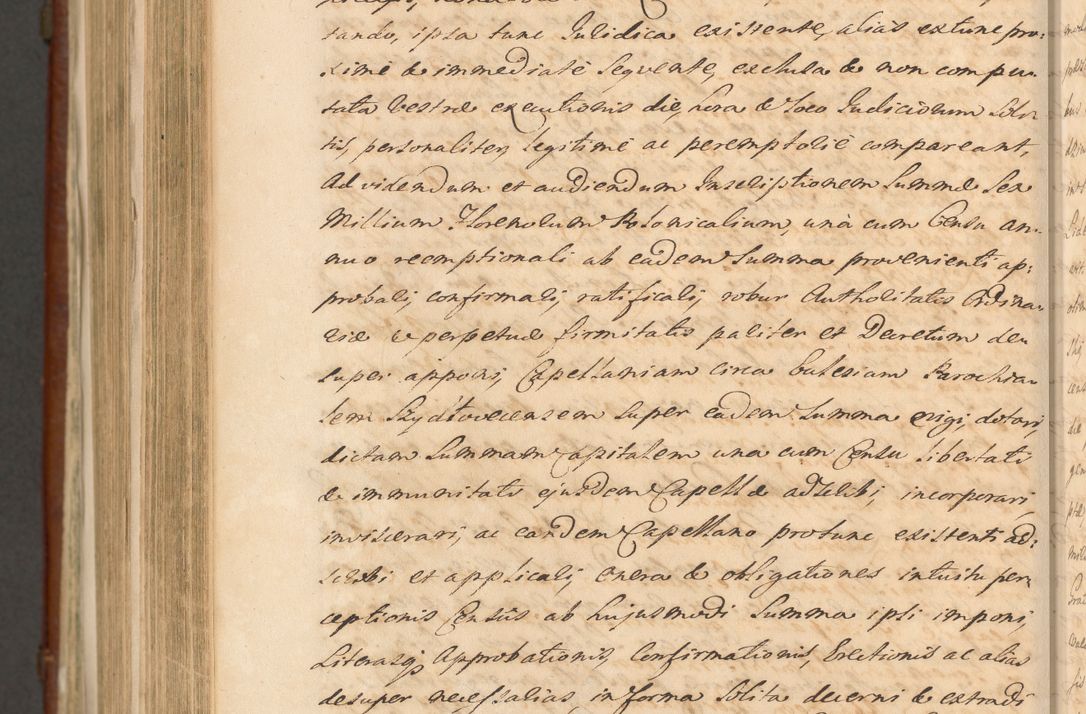 tando, ipsa tunc Iuridica existente, alias extunc pro:
ximè & immediatè sequente, exclusa & non compu
tata Vestræ executionis die, hora & loco Iudiciorum soli
tis, personaliter, legitimè ac peremptoriè compareant,
Ad videndum et audiendum Inscriptionem Summæ Sex
Millium Florenorum Polonicalium, unà cum Censu an
nuo reemptionali ab eadem Summa provenienti ap:
probari, confirmari, ratificari, robur Authoritatis Ordina
riæ & perpetuæ firmitatis pariter et Decretum de
super apponi, Capellaniam circa Ecclesiam Parochia
lem Szydłoveciensem super eadem Summa erigi, dotari,
dictam Summam Capitalem una cum Censu libertati
& immunitati ejusdem Capellæ adscribi, incorporari
inviscerari, ac eandem Capellano protunc existenti ad:
scribi et applicari, onera & obligationes intuitu per
ceptionis Censûs ab hujusmodi Summa ipsi imponi,
Literasq Approbationis, Confirmationis, Erectionis ac alias
desuper necessarias, in forma solita decerni & extradi